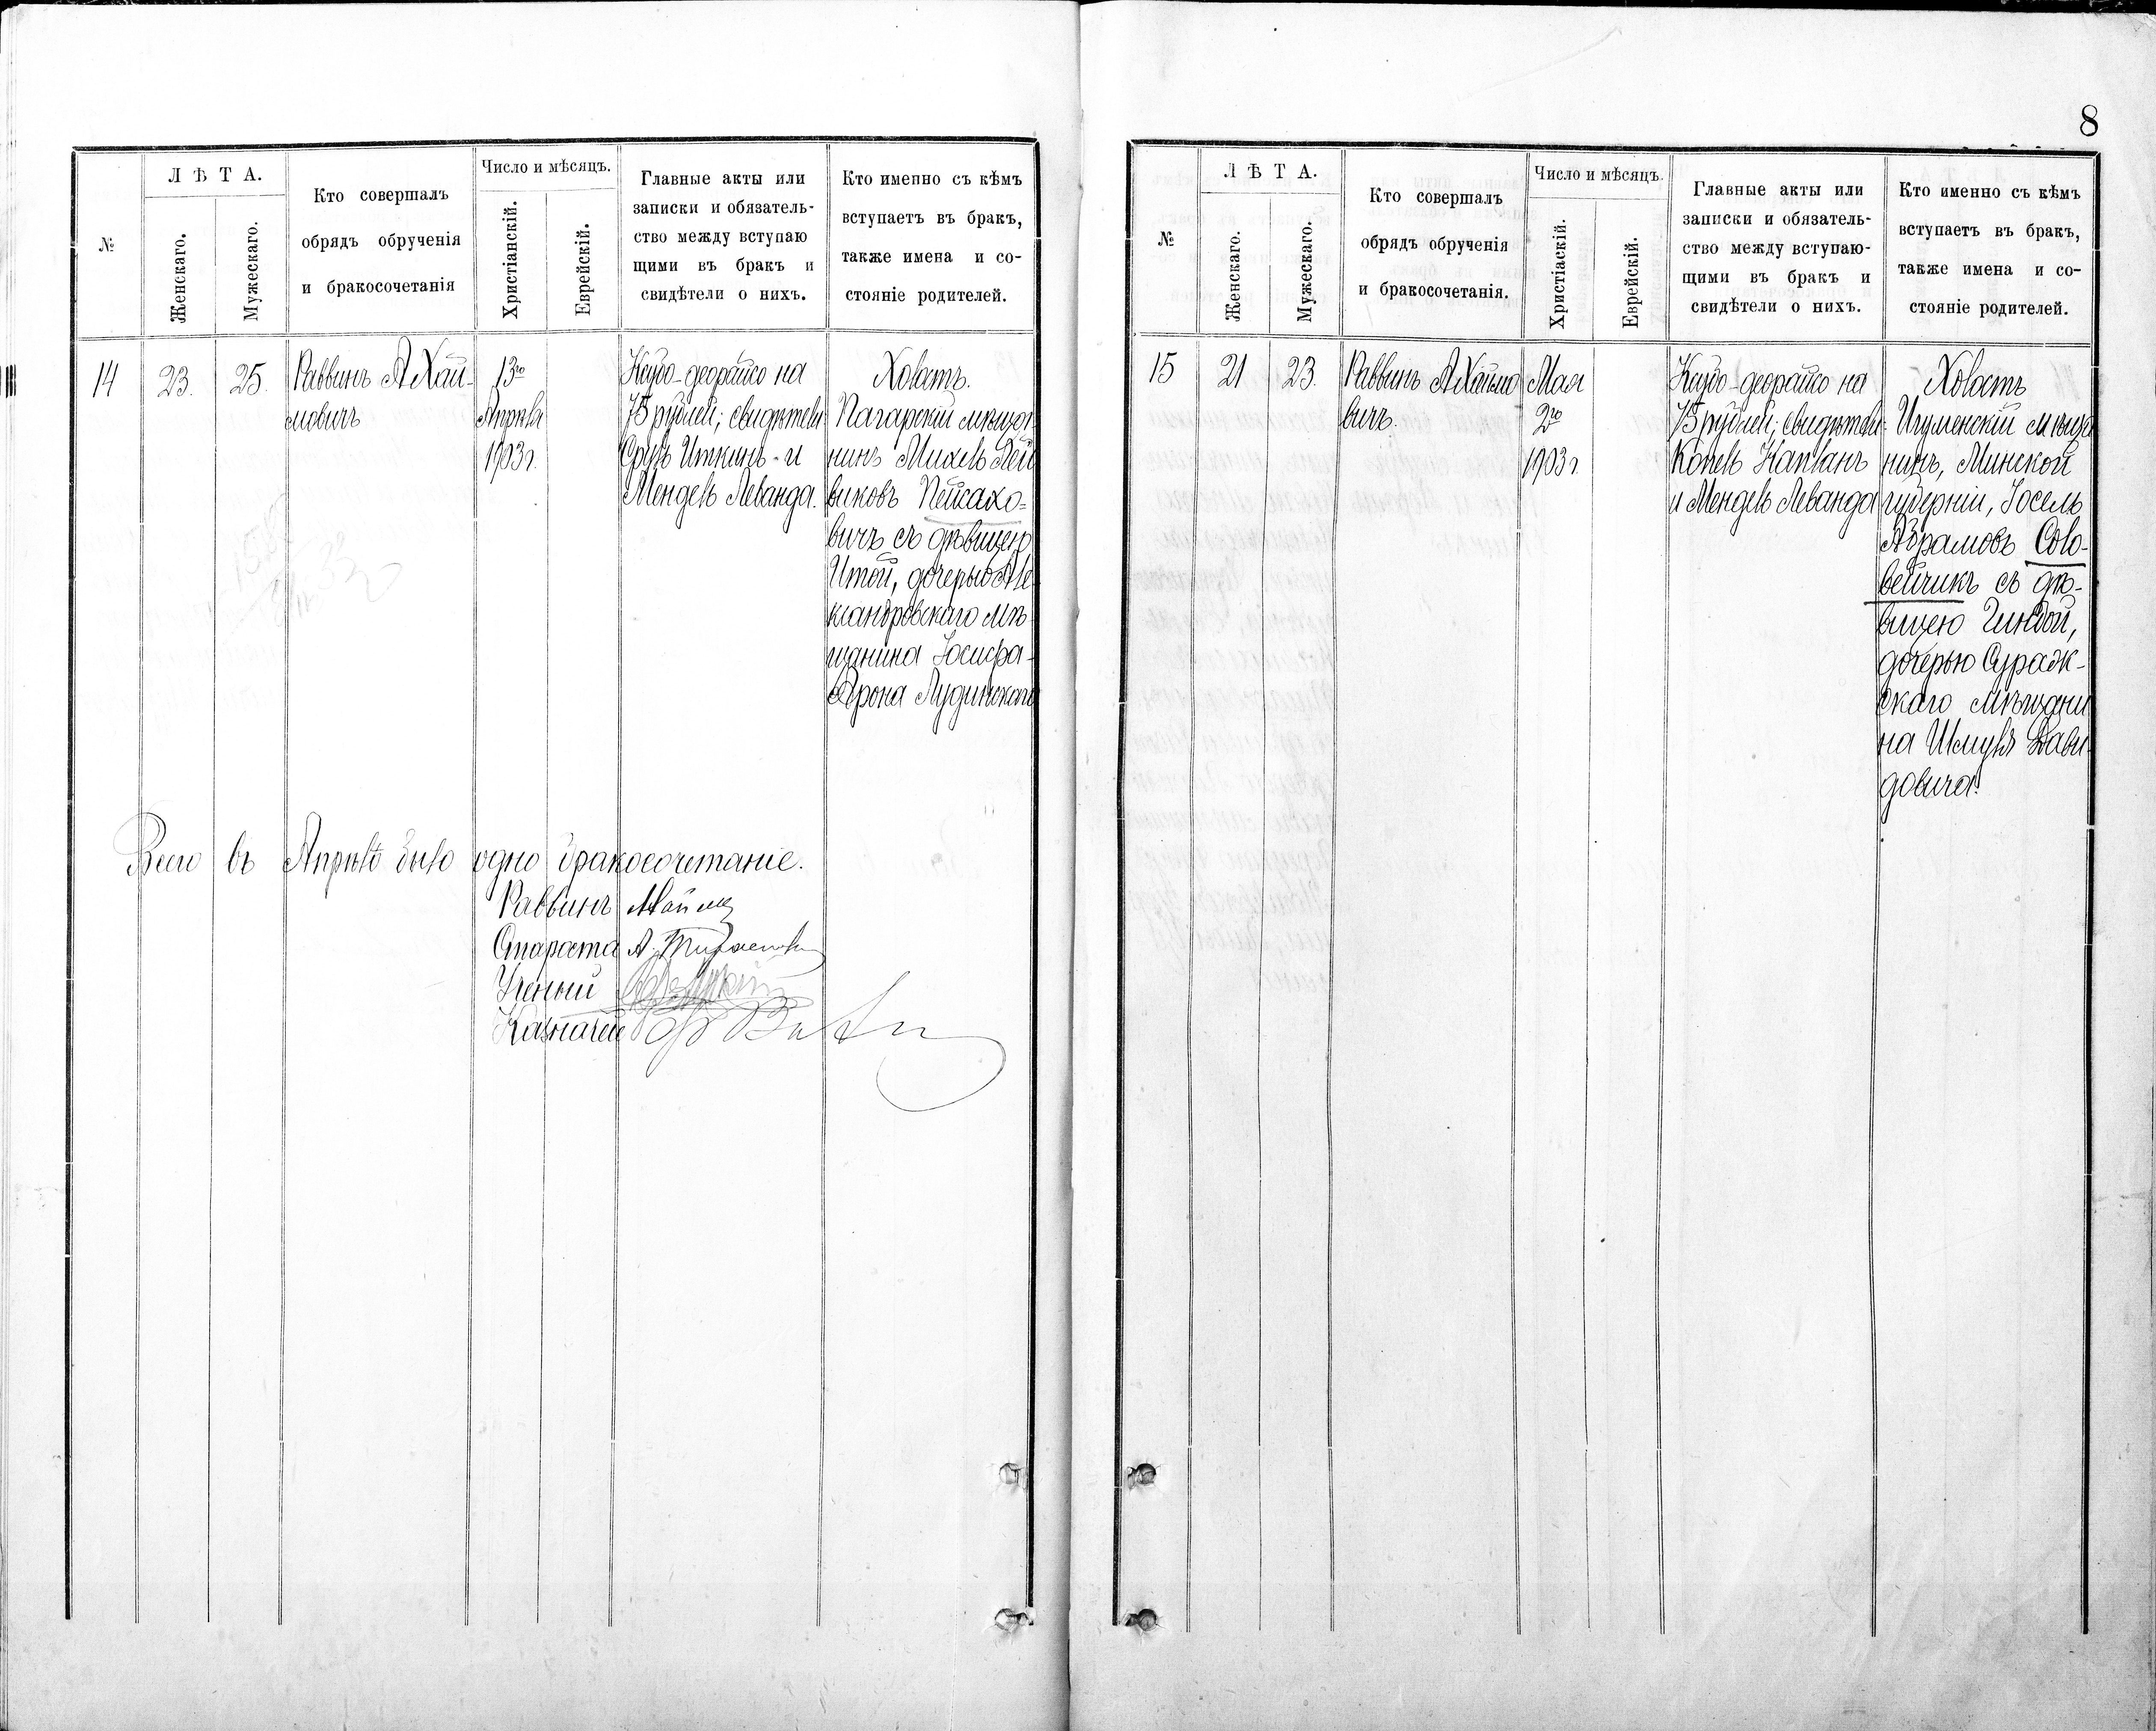 №
Л Ѣ Т А.
Женскаго.
Мужескаго.
Кто совершалъ
обрядъ обрученія
и бракосочетанія
Число и мѣсяцъ.
Христіанскій.
Еврейскій.
Главные акты или
записки и обязатель-
ство между вступаю
щими въ бракъ и
свидѣтели о нихъ.
Кто именно съ кѣмъ
вступаетъ въ бракъ,
также имена и со-
стояніе родителей.
14
23.
25.
Раввинъ А Хай-
мовичъ
13го
Апрѣля
1903 г.
на
75 рублей; свидѣтели
Сруль Иткинъ - и
Мендель Леванда.
Холостъ.
Пагарскій мѣща-
нинъ Михель Лей
виковъ Пейсахо=
вичъ съ дѣвицею
Итой, дочерью Але
ксандровскаго мѣ-
щанина Іосифа-
Арона Лудинскаго
Всего въ Апрѣлѣ было одно бракосочетаніе.
Раввинъ
Староста
Ученый
Казначей
8
№
Л Ѣ Т А.
Женскаго.
Мужескаго.
Кто совершалъ
обрядъ обрученія
и бракосочетанія.
Число и мѣсяцъ.
Христіаскій.
Еврейскій.
Главные акты или
записки и обязатель-
ство между вступаю-
щими въ бракъ и
свидѣтели о нихъ.
Кто именно съ кѣмъ
вступаетъ въ бракъ,
также имена и со-
стояніе родителей.
15
21
23.
Раввинъ А Хаймо
вичъ.
Мая
2го
1903 г
на
75 рублей; свидѣтели:
Копель Капланъ
и Мендель Леванда
Холостъ
Игуменскій мѣща
нинъ, Минской
губерніи, Іосель
Абрамовъ Соло-
вейчикъ съ дѣ-
вицею Гиндой,
дочерью Сураж-
скаго мѣщани
на Шмуля Дави
довича.